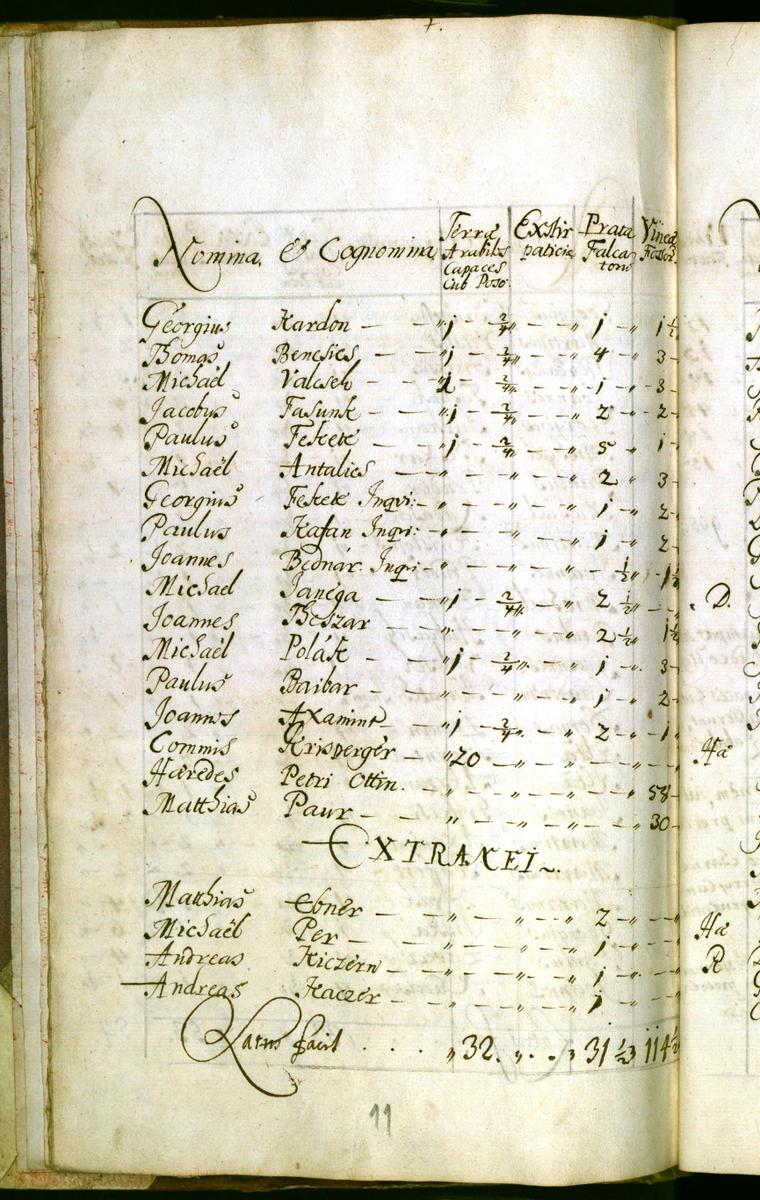 7.
Nomina & Cognomina Terræ Arabiles Capaces Cub Poso. Extirpaticiæ Prata Falcatorũ Vineæ Fossor.
Georgius Kardon — „ 1 2/4 „ — „ 1 „ 1 1/2
Thomas Bencsics — „ 1 2/4 „ — „ 4 „ 3
Michaël Valcseh — „ 1 2/4 „ — „ 1 „ 3
Jacobus Fasunk — „ 1 2/4 „ — „ 2 „ 2
Paulus Fekete — „ 1 2/4 „ — „ 5 „ 1
Michaël Antalics — „ — „ — „ 2 „ 3
Georgius Fekete Inqvi: „ — „ — „ 1 „ 2
Paulus Kafan Inqvi: „ — „ — „ 1 „ 2
Joannes Bednár Inqvi „ — „ — „ 1/2 „ 1 1/2
Michael Janega — „ 1 2/4 „ — „ 2 1/2 — „
Joannes — „ — „ — „ 2 1/2 „ 1 1/2
Michaël Polák — „ 1 2/4 „ — „ 1 „ 3
Paulus Baibar — „ — „ — „ 1 „ 2
Joannes Axamint — „ 1 2/4 „ — „ 2 „ 1
Commis Krisperger — „ 20 — „ — „ — „
Hæredes Petri Ottin. — „ — „ — „ — „ 58
Matthias Paur — „ — „ — „ — „ 30
EXTRANEI
Matthias Ebner — „ — „ — „ 2 „ — „
Michaël Per — „ — „ — „ 1 „ — „
Andreas Kiczern — „ — „ — „ 1 „ — „
Andreas Kaczer — „ — „ — „ 1 „ — „
Latus facit . . . „ 32. „ . . „ 31 1/2 114 1/2
11
D.
Hæ
Hæ
R